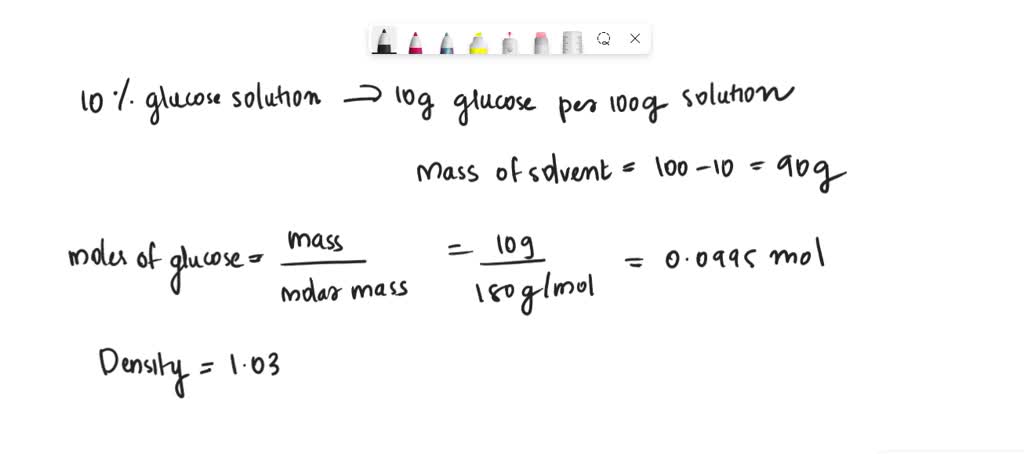 10 % glucose solution → 10g glucose per 100g solution
Mass of solvent = 100 - 10 = 90g
moles of glucose = mass / molar mass = 10g / 180g/mol = 0.0995 mol
Density = 1.03